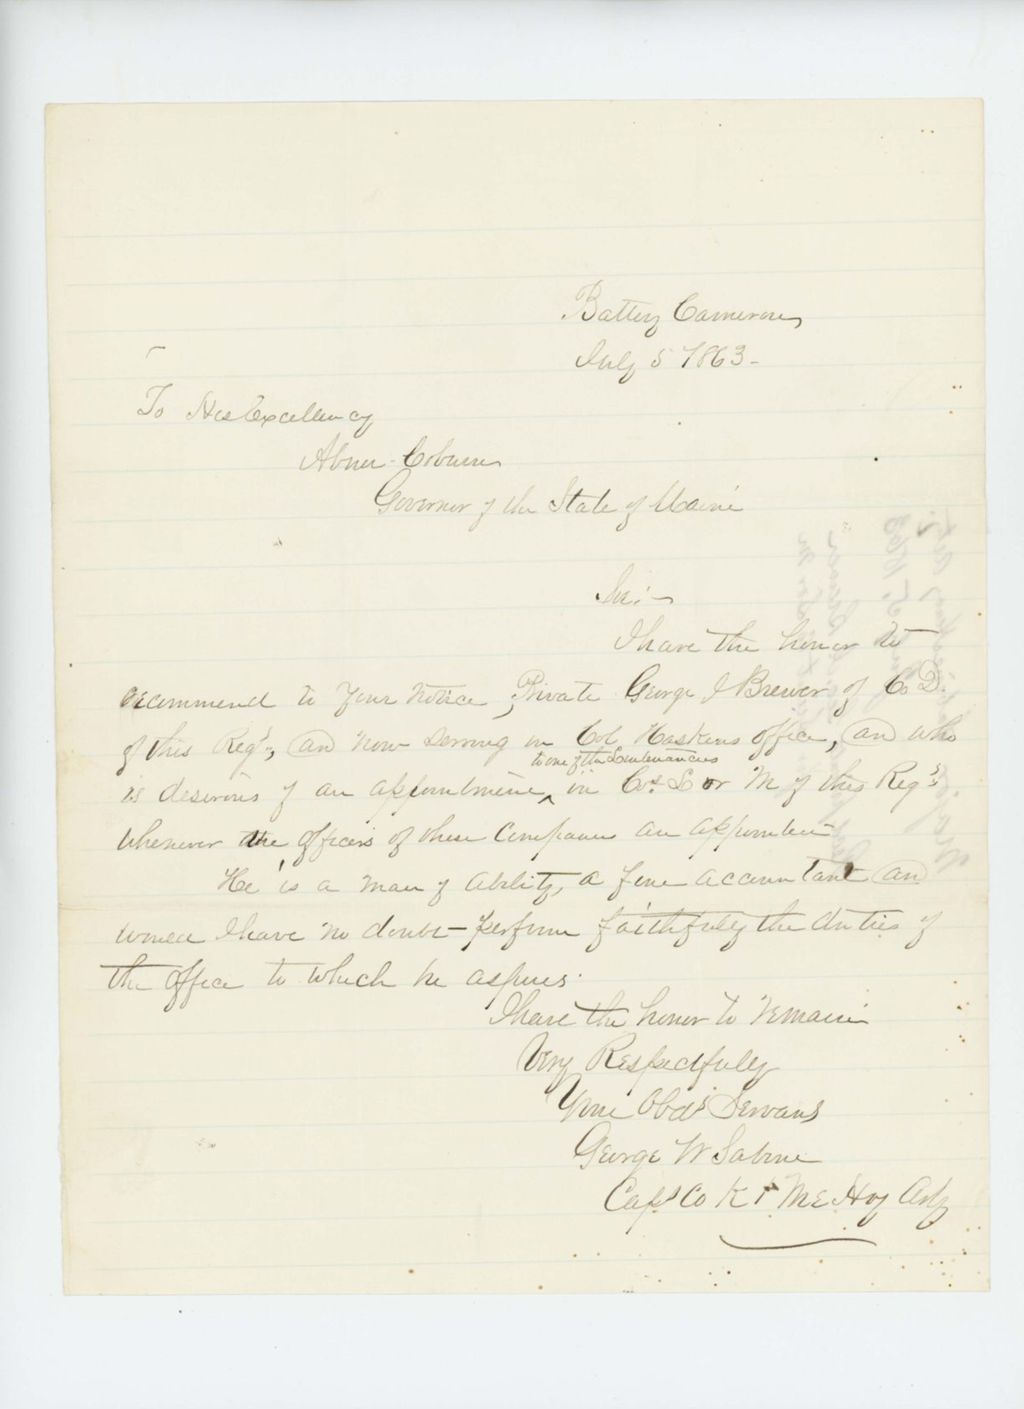 Battery Cameron
July 5 1863-
To His Excellency
Abner Coburn
Governor of the State of Maine
Sir:-
I have the honor to
recommend to Your Notice, Private George J Brewer of Co D.
of this Regt, and now serving in Col Haskins office, and who
to one of the Lieutenancies
is desirous of an appointment ^ in Cos L or M of this Regt
whenever the officers of these Companies are appointed
He is a man of ability, a fine accountant and
would I have no doubt perform faithfully the duties of
the office to which he aspires.
I have the honor to remain
Very Respectfully
Your Obdt Servant
George W Sabine
Capt Co K 1st Me Hvy Arty